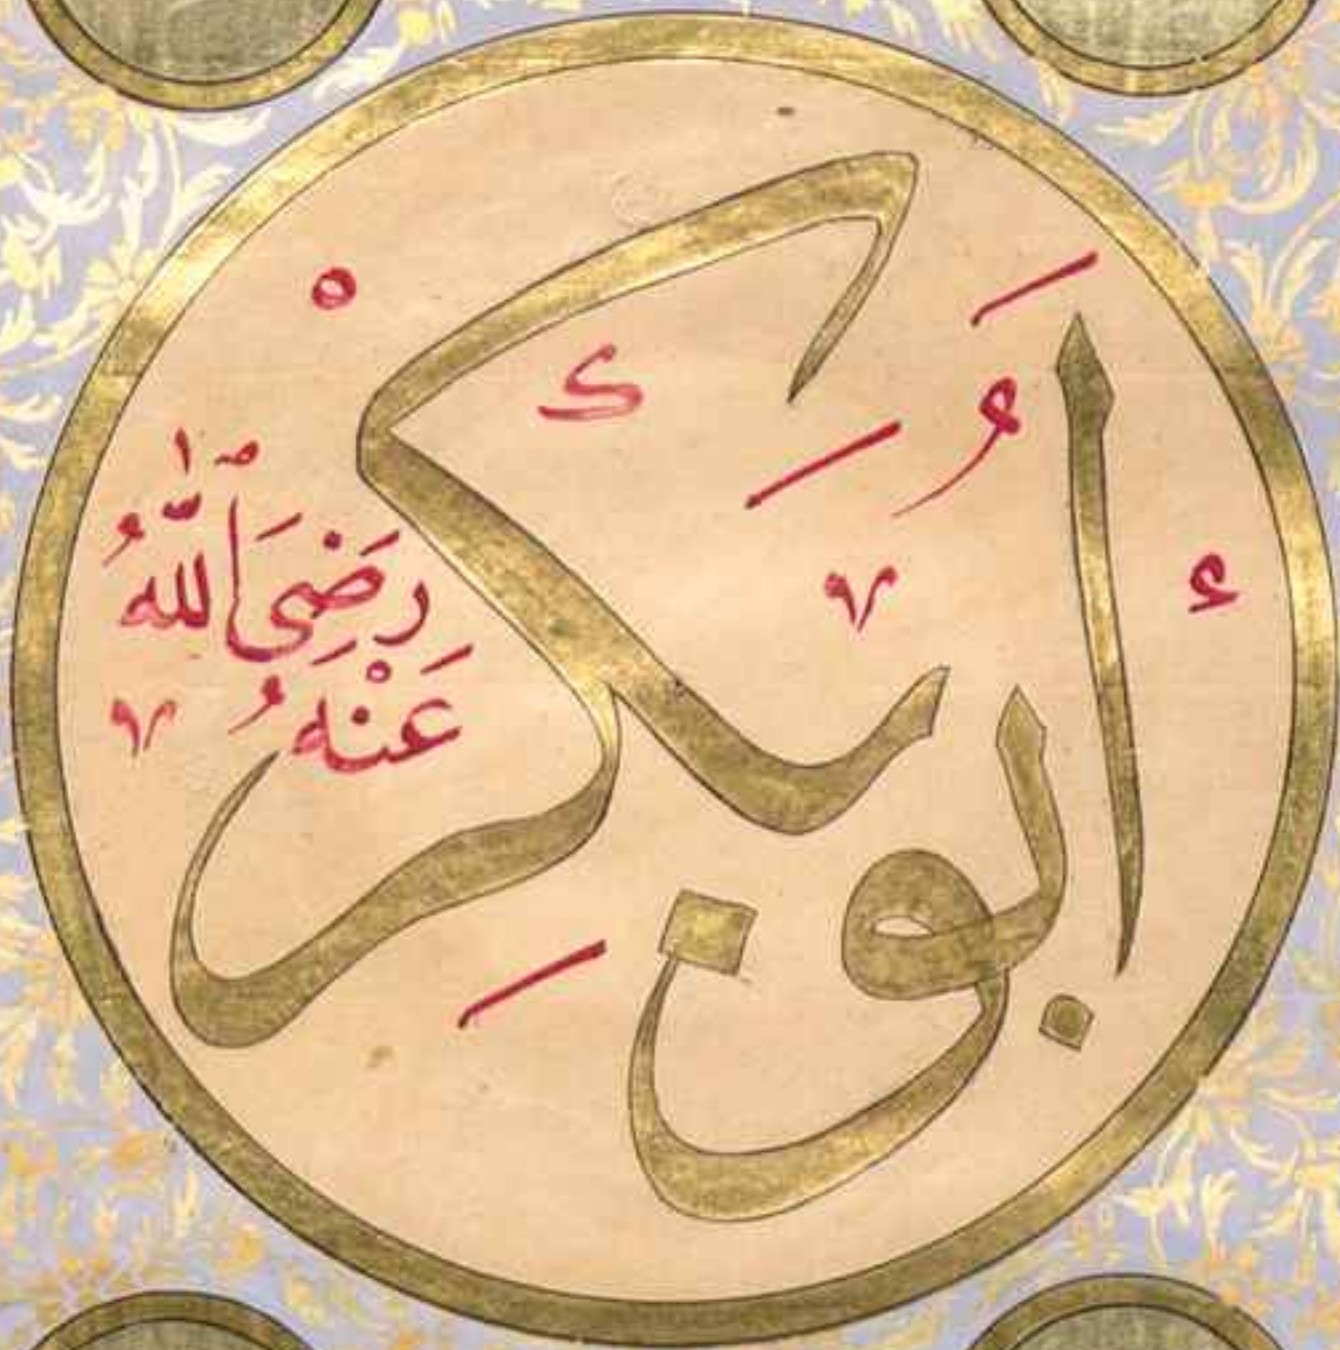 ابو بكر
رَضِيَ اللّٰهُ
عَنْهُ